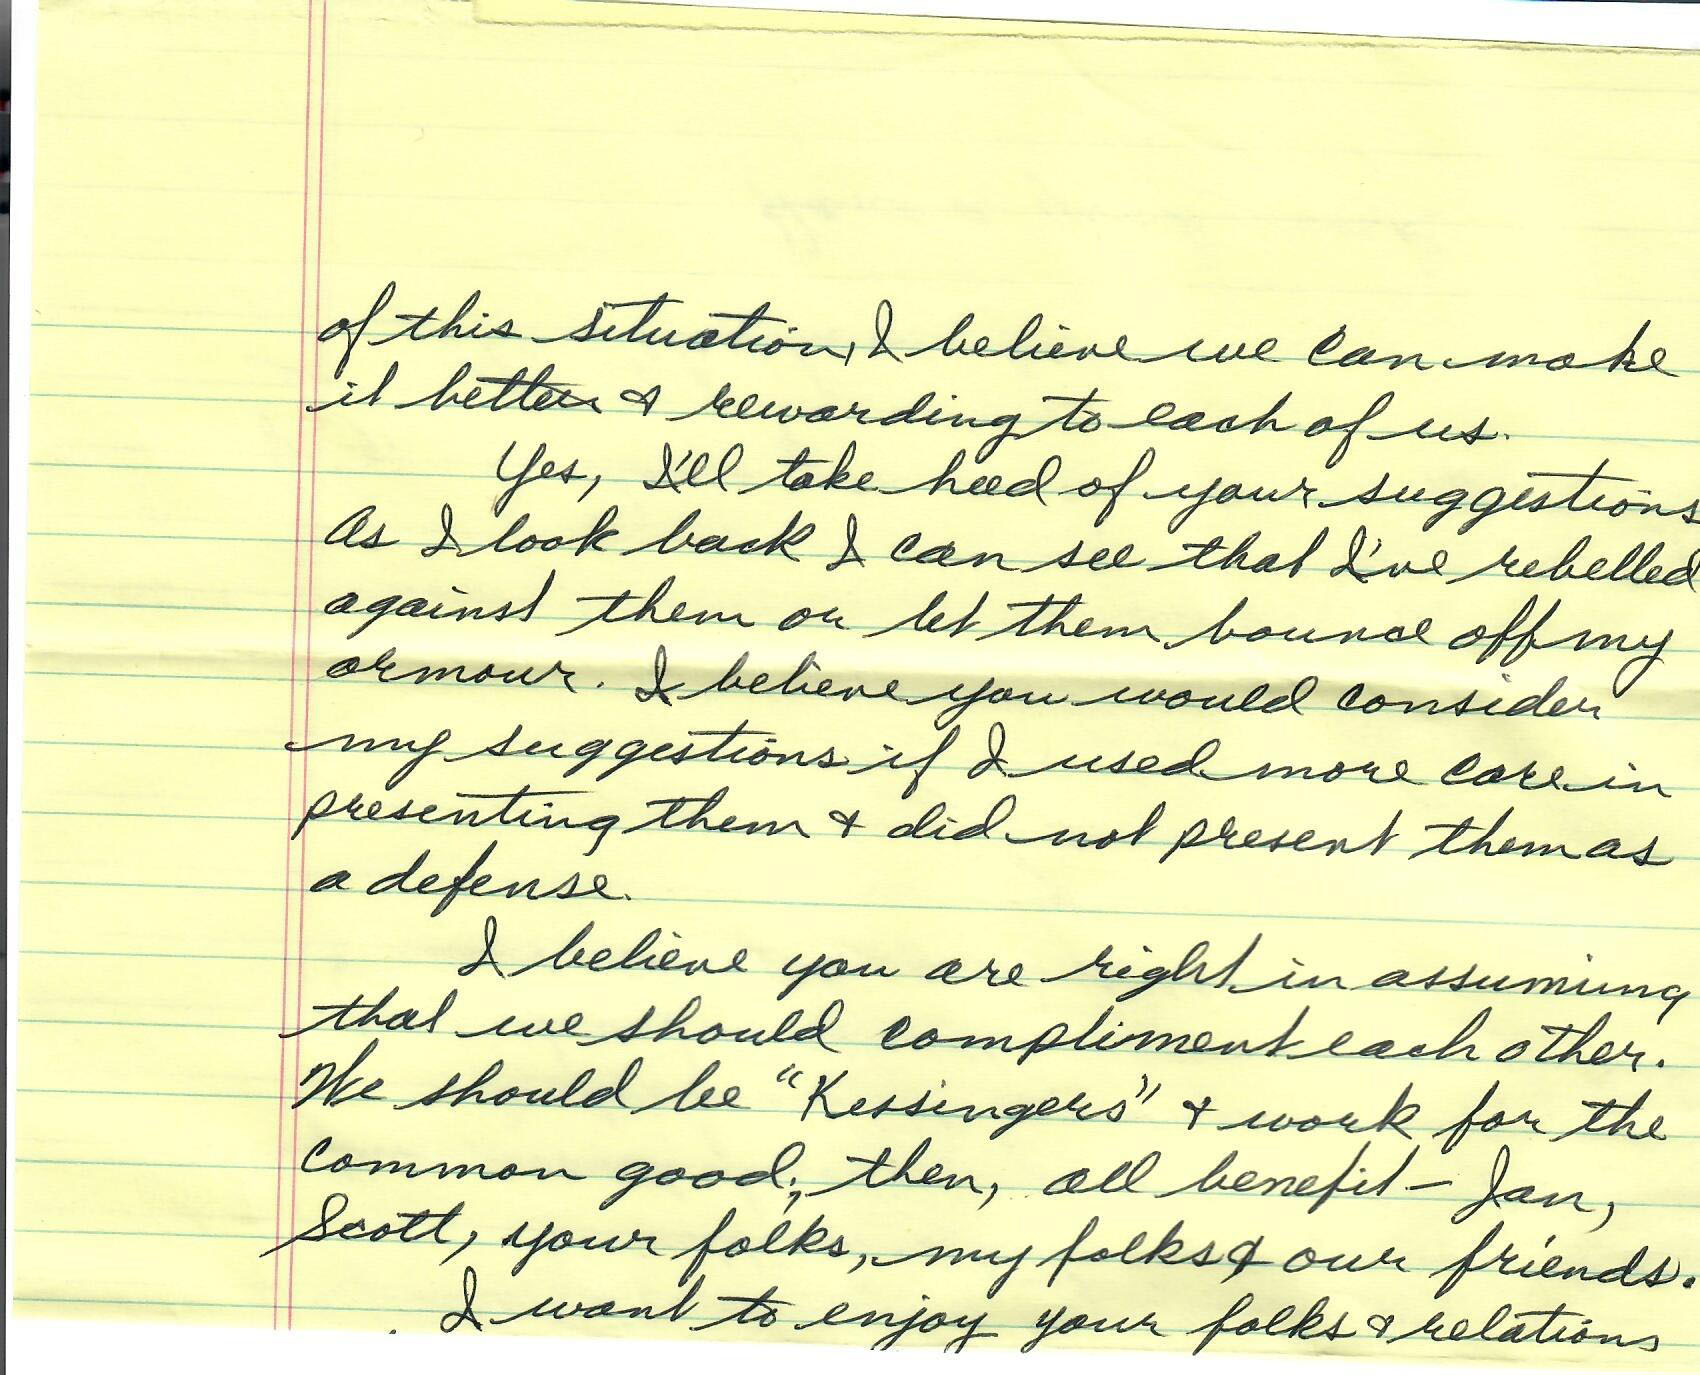 of this situation, I believe we can make
it better & rewarding to each of us.
Yes, I'll take heed of your suggestions
As I look back I can see that I've rebelled
against them or let them bounce off my
armour. I believe you would consider
my suggestions if I used more care in
presenting them & did not present them as
a defense.
I believe you are right in assuming
that we should compliment each other.
We should be "Kissingers" & work for the
common good; then, all benefit – Jan,
Scott, your folks, my folks & our friends.
I want to enjoy your folks & relations